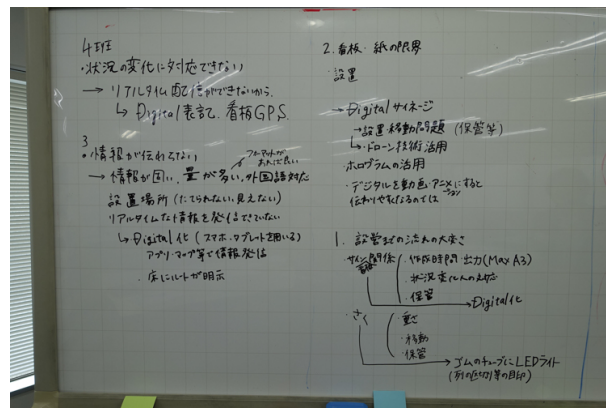 4班
・状況の変化に対応できない
→ リアルタイム配信ができないから.
↳ Digital表記. 看板GPS.
3
・情報が伝わってない
フォーマットが
あれば良い
→ 情報が固い, 量が多い, 外国語対応
設置場所 (たてられない, 見えない)
リアルタイムな情報を発信できていない
↳ Digital化 (スマホ・タブレットを用いる)
アプリ・マップ等で情報発信
・床にルートが明示
2. 看板・紙の限界
・設置
→ Digitalサイネージ
→設置・移動問題 (保管等)
↳・ドローン技術活用
・ホログラムの活用
・デジタルを動画・アニメーションにすると
伝わりやすくなるのでは
1. 設営までの流れの大変さ
・サイン関係
看板
・作成時間・出力(Max A3)
・状況変化への対応
・保管
→Digital化
・さく
・重さ
・移動
・保管
→ゴムのチューブにLEDライト
(列の区切り等の目印)